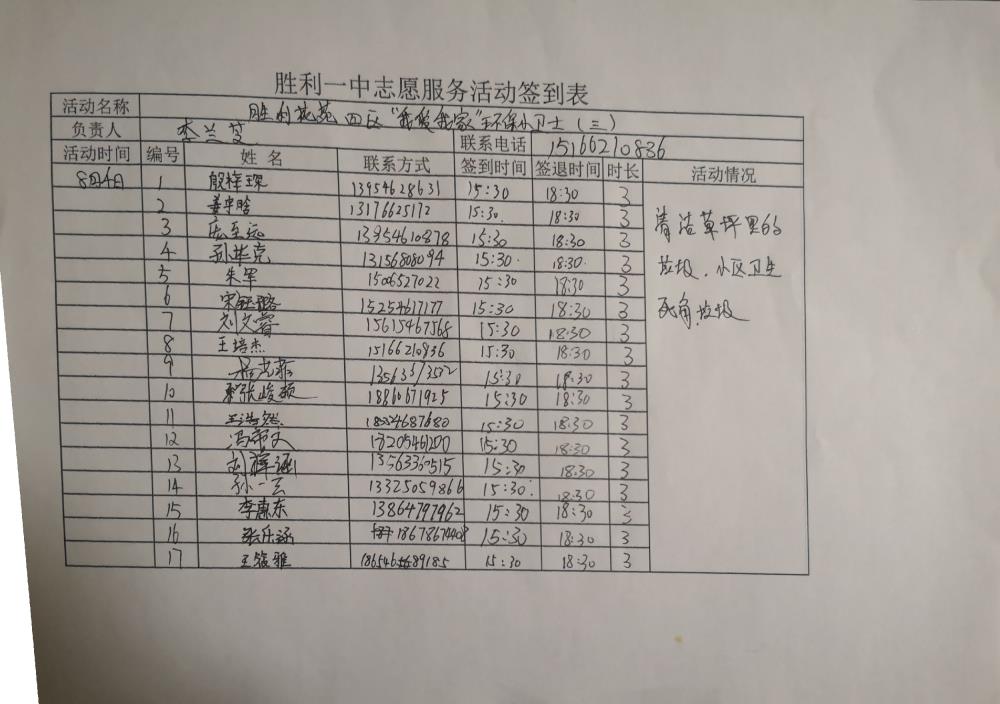 胜利一中志愿服务活动签到表
活动名称 胜利花苑四区“我爱我家”环保小卫士(三)
负责人 李兰芝 联系电话 15166210836
活动时间 编号 姓名 联系方式 签到时间 签退时间 时长 活动情况
8月4日 1 殷梓琛 13954628631 15:30 18:30 3
2 姜宇晗 13176625172 15:30 18:30 3
3 庞至远 13954610878 15:30 18:30 3
4 孙华克 13156808094 15:30 18:30 3
5 朱军 1506527022 15:30 18:30 3
6 宋钰璐 15254617177 15:30 18:30 3
7 刘文睿 15615467568 15:30 18:30 3
8 王培杰 15166210936 15:30 18:30 3
9 15:30 18:30 3
10 张峻硕 18860671925 15:30 18:30 3
11 王浩然 15:30 18:30 3
12 15:30 18:30 3
13 15:30 18:30 3
14 孙一 13325059866 15:30 18:30 3
15 李惠东 13864797962 15:30 18:30 3
16 张乐涵 15:30 18:30 3
17 王馥雅 15:30 18:30 3
清洁草坪里的
垃圾、小区卫生
死角垃圾